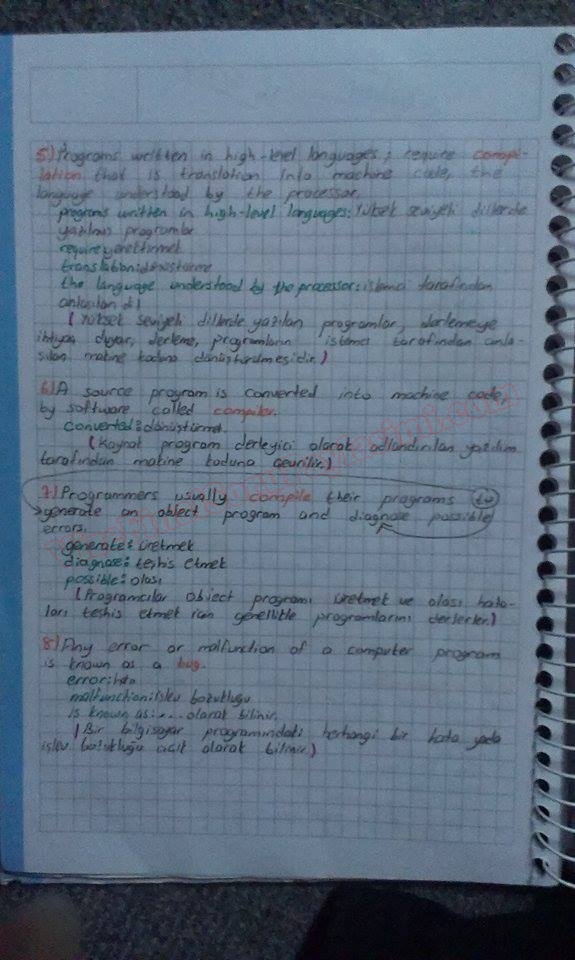 5) Programs written in high-level languages; require compi-
lation that is translation into machine code, the
language understood by the processor.
programs written in high-level languages: Yüksek seviyeli dillerde
yazılmış programlar
require: gerektirmek
translation: dönüştürme
the language understood by the processor: işlemci tarafından
anlaşılan dil
(Yüksek seviyeli dillerde yazılan programlar, derlemeye
ihtiyaç duyar, derleme, programların işlemci tarafından anla-
şılan makine koduna dönüştürülmesidir.)
6) A source program is converted into machine code
by software called compiler.
converted: dönüştürme
(Kaynak program derleyici olarak adlandırılan yazılım
tarafından makine koduna çevrilir.)
7) Programmers usually compile their programs to
generate an object program and diagnose possible
errors.
generate: üretmek
diagnose: teşhis etmek
possible: olası
(Programcılar object programı üretmek ve olası hata-
ları teşhis etmek için genellikle programlarını derlerler.)
8) Any error or malfunction of a computer program
is known as a bug.
error: hata
malfunction: işlev bozukluğu
is known as: .... olarak bilinir.
(Bir bilgisayar programındaki herhangi bir hata yada
işlev bozukluğu olarak bilinir.)